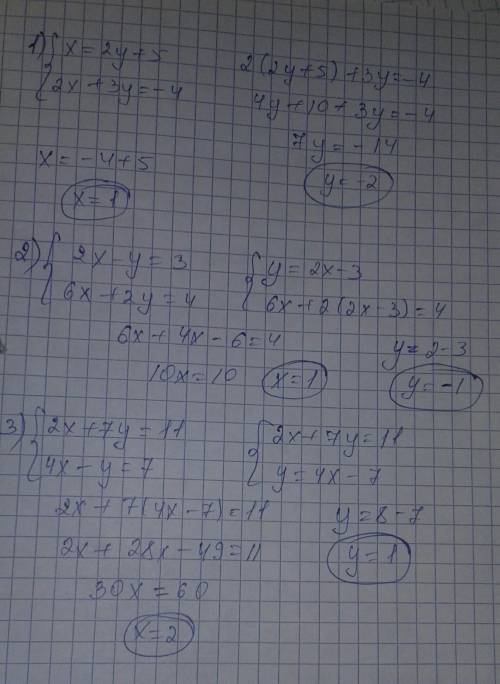 1) { x = 2y + 5
2x + 3y = -4
2(2y+5) + 3y = -4
4y + 10 + 3y = -4
7y = -14
y = -2
x = -4 + 5
x = 1
2) { 2x - y = 3
6x + 2y = 4
{ y = 2x - 3
6x + 2(2x - 3) = 4
6x + 4x - 6 = 4
10x = 10
x = 1
y = 2 - 3
y = -1
3) { 2x + 7y = 11
4x - y = 7
{ 2x + 7y = 11
y = 4x - 7
2x + 7(4x - 7) = 11
2x + 28x - 49 = 11
30x = 60
x = 2
y = 8 - 7
y = 1